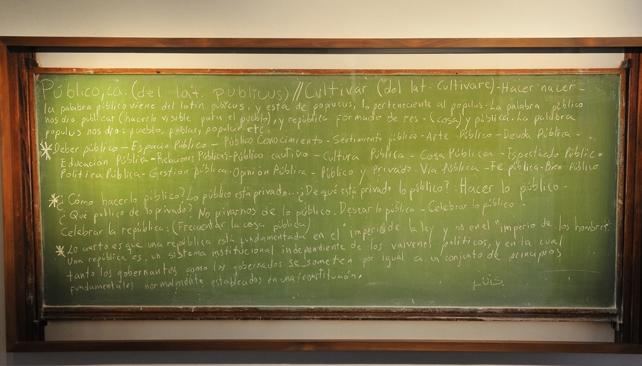 Público, ca. (del lat. publicus) // Cultivar (del lat. cultivare) - Hacer nacer -
la palabra público viene del latín públicus, y esta de populus, lo perteneciente al populus. La palabra público
nos dio publicar (hacerlo visible para el pueblo), y república formado de res - (cosa) y pública. La palabra
populus nos dio: pueblo, poblar, popular etc.
*Deber público - Espacio Público - Público Conocimiento - Sentimiento público - Arte Público - Deuda Pública -
Educación Pública - Relaciones Públicas - Público cautivo - Cultura Pública - Cosa Pública - Espectáculo Público
Política Pública - Gestión pública - Opinión Pública - Público y privado - Vía Pública - Fe pública - Bien Público
*¿Cómo hacerlo público? Lo público está privado... ¿De qué está privado lo público? Hacer lo público -
¿Qué público de lo privado? No privarnos de lo público. Desear lo público - Celebrar lo público -
Celebrar la república: (Frecuentar la cosa pública)
*Lo cierto es que una república está fundamentada en el "imperio de la ley y no en el "imperio de los hombres".
Una república es, un sistema institucional independiente de los vaivenes políticos, y en la cual
tanto los gobernantes como los gobernados se someten por igual a un conjunto de principios
fundamentales normalmente establecidos en una constitución.